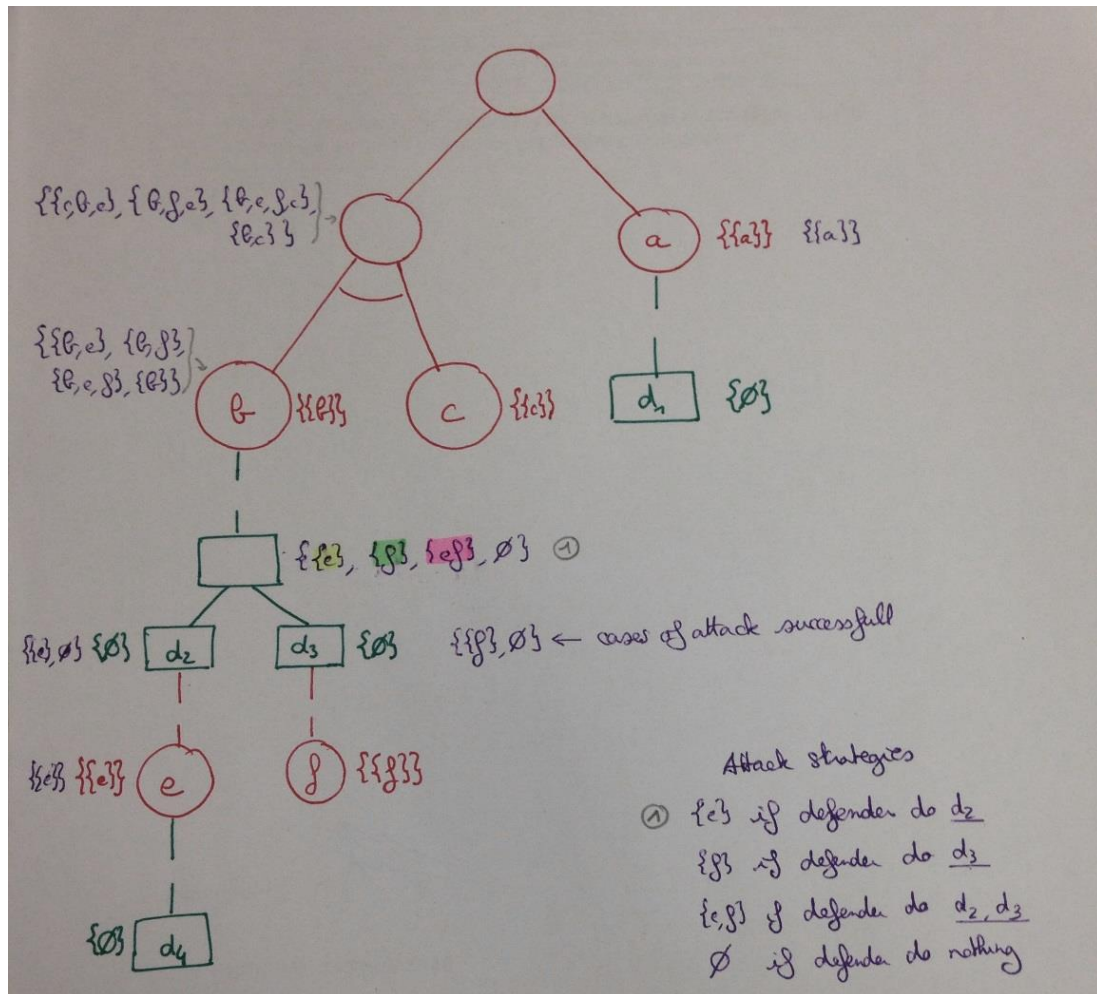 {{c,b,e}, {b,f,e}, {b,e,f,c},
{b,c}}
a {{a}} {{a}}
{{b,e}, {b,f},
{b,e,f}, {b}}
b {{b}} c {{c}} d₁ {∅}
{{e}, {f}, {ef}, ∅} ①
{{e},∅} {∅} d₂ d₃ {∅} {{f},∅} ← cases of attack successfull
{{e}} {{e}} e f {{f}}
Attack strategies
① {e} if defender do d₂
{f} if defender do d₃
{e,f} if defender do d₂, d₃
∅ if defender do nothing
{∅} d₄